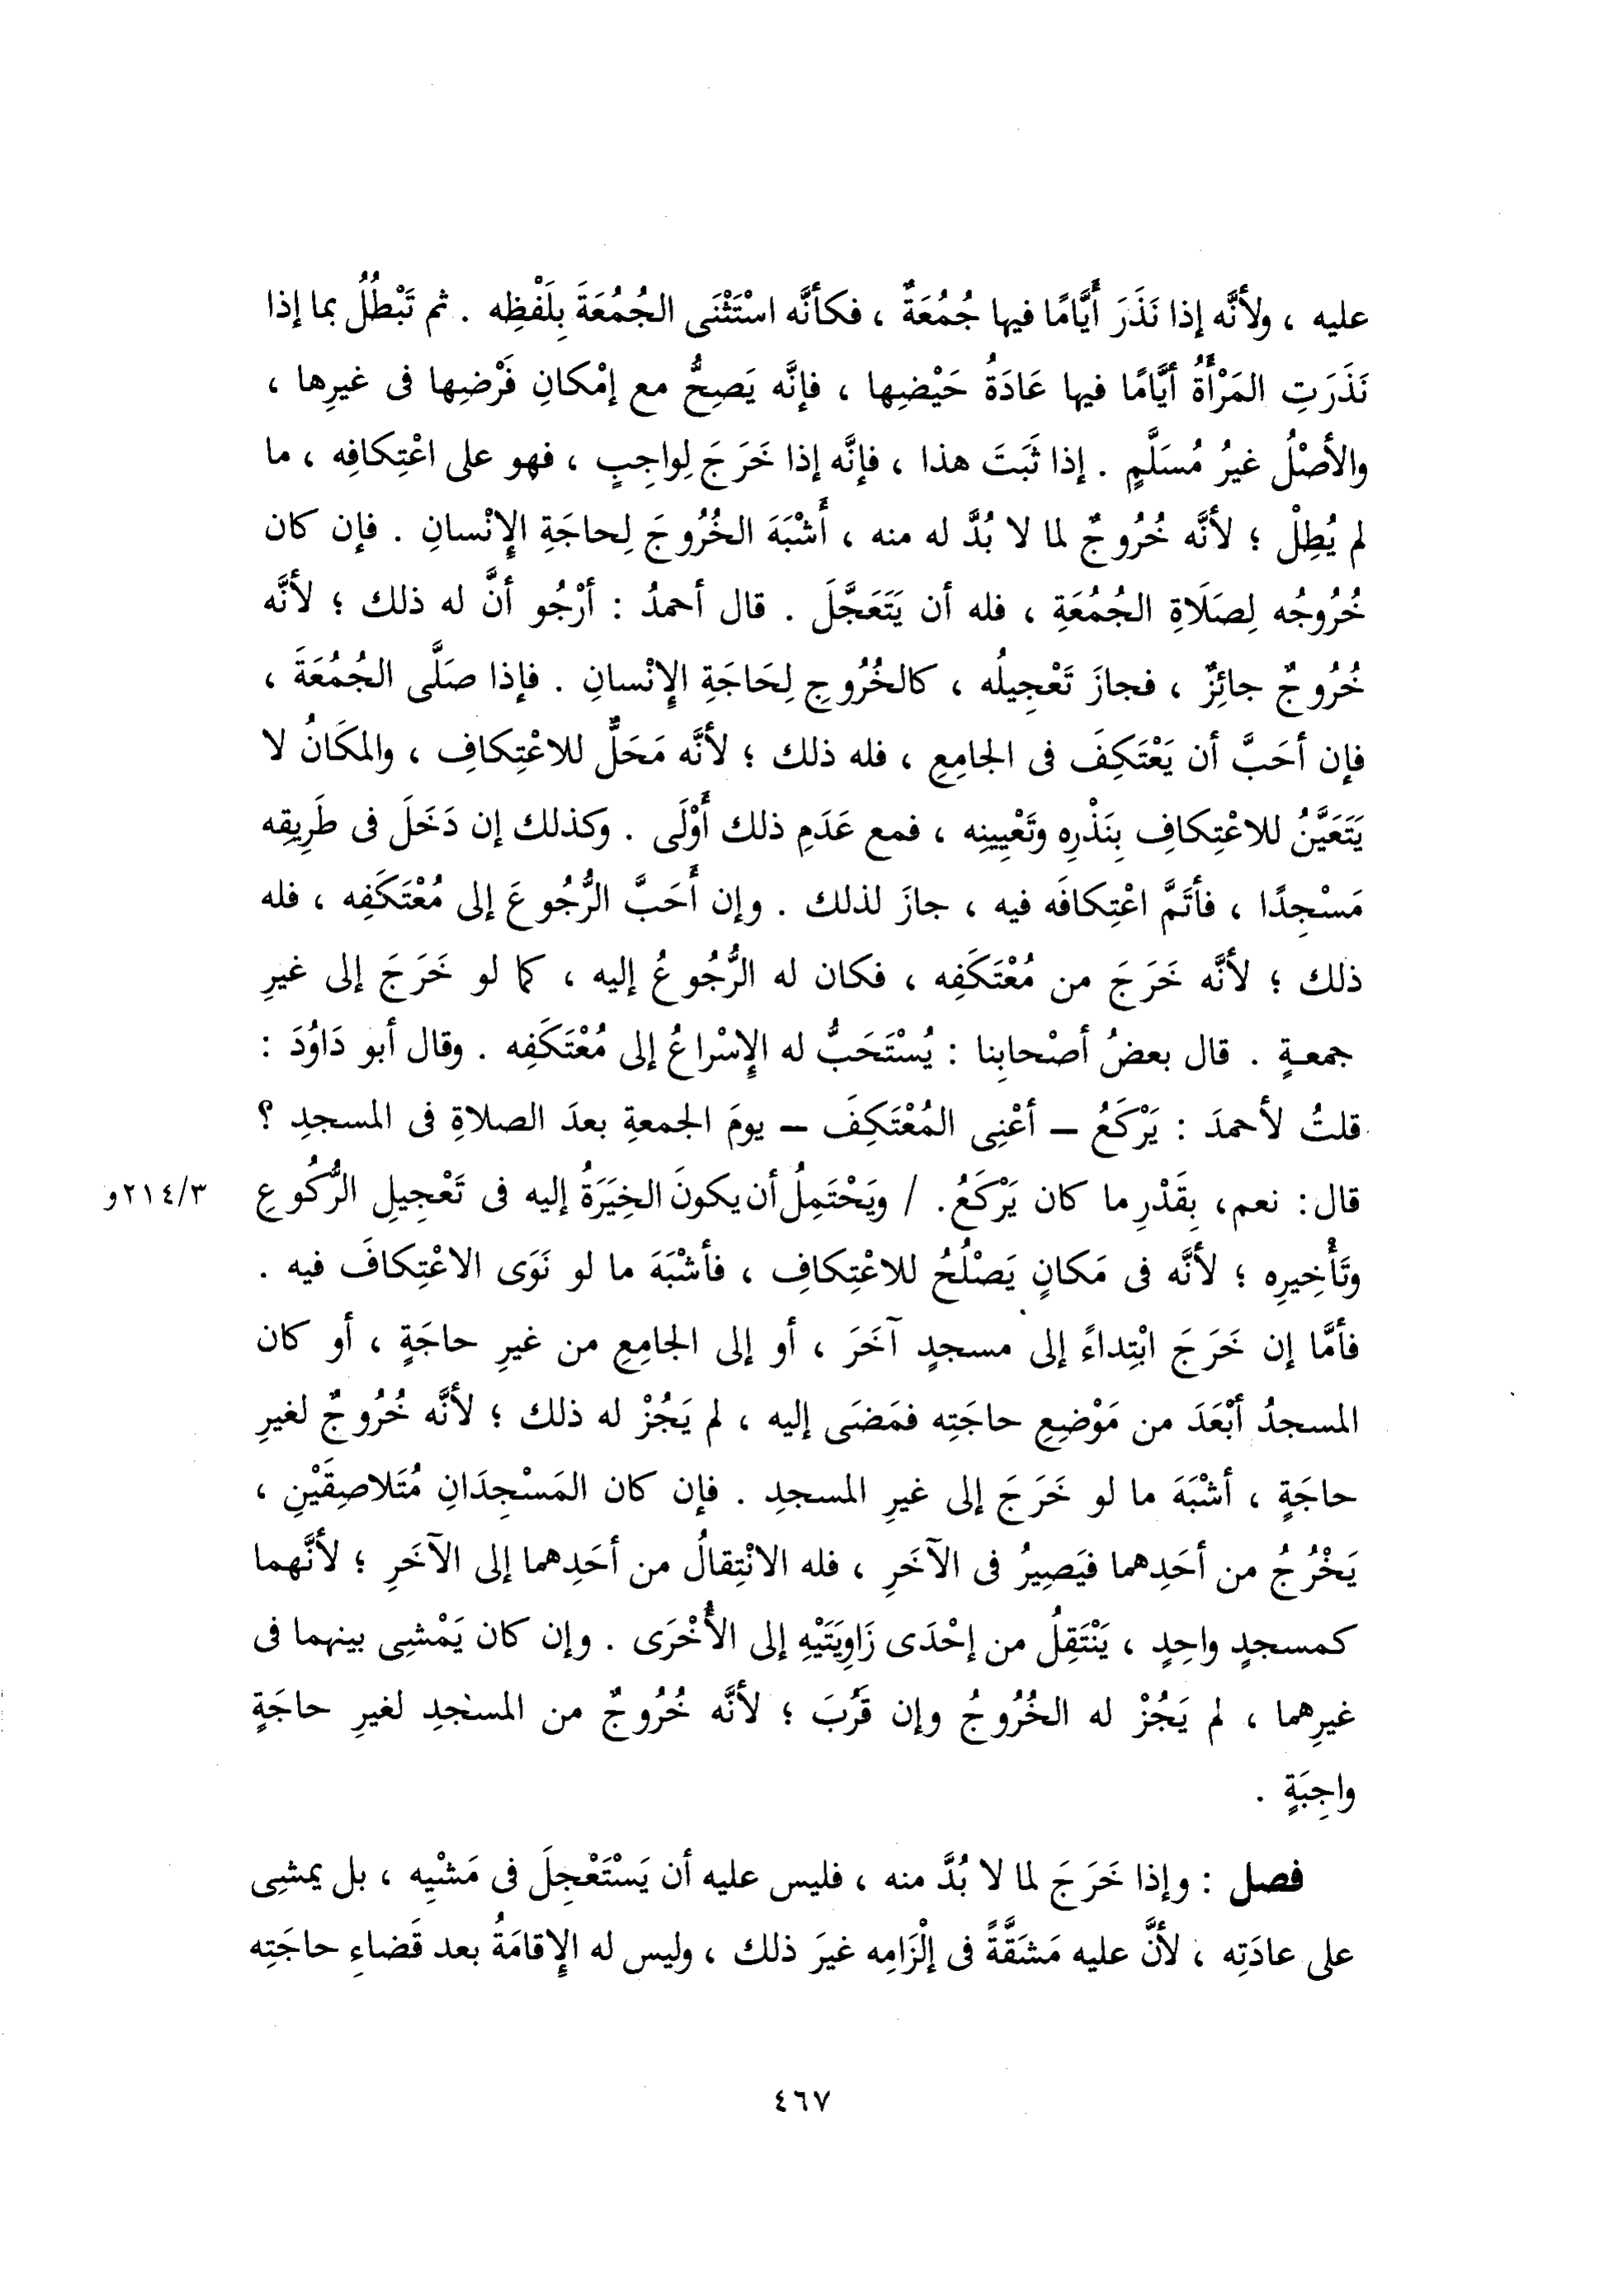 عليه ، ولأنَّه إذا نَذَرَ أَيَّامًا فيها جُمُعَةٌ ، فكأنَّه اسْتَثْنَى الجُمُعَةَ بِلَفْظِه . ثم تَبْطُلُ بما إذا
نَذَرَتِ المَرْأَةُ أيَّامًا فيها عَادَةُ حَيْضِها ، فإنَّه يَصِحُّ مع إمْكانِ فَرْضِها فى غيرِها ،
والأصْلُ غيرُ مُسَلَّمٍ . إذا ثَبَتَ هذا ، فإنَّه إذا خَرَجَ لِواجِبٍ ، فهو على اعْتِكافِه ، ما
لم يُطِلْ ؛ لأنَّه خُرُوجٌ لما لا بُدَّ له منه ، أَشْبَهَ الخُرُوجَ لِحاجَةِ الإِنْسانِ . فإن كان
خُرُوجُه لِصَلَاةِ الجُمُعَةِ ، فله أن يَتَعَجَّلَ . قال أحمدُ : أرْجُو أنَّ له ذلك ؛ لأنَّه
خُرُوجٌ جائِزٌ ، فجازَ تَعْجِيلُه ، كالخُرُوجِ لِحَاجَةِ الإِنْسانِ . فإذا صَلَّى الجُمُعَةَ ،
فإن أحَبَّ أن يَعْتَكِفَ فى الجامِعِ ، فله ذلك ؛ لأنَّه مَحَلٌّ للاعْتِكافِ ، والمكَانُ لا
يَتَعَيَّنُ للاعْتِكافِ بِنَذْرِه وتَعْيِينِه ، فمع عَدَمِ ذلك أَوْلَى . وكذلك إن دَخَلَ فى طَرِيقِه
مَسْجِدًا ، فأتَمَّ اعْتِكافَه فيه ، جازَ لذلك . وإن أَحَبَّ الرُّجُوعَ إلى مُعْتَكَفِه ، فله
ذلك ؛ لأنَّه خَرَجَ من مُعْتَكَفِه ، فكان له الرُّجُوعُ إليه ، كما لو خَرَجَ إلى غيرِ
جمعةٍ . قال بعضُ أصْحابِنا : يُسْتَحَبُّ له الإِسْراعُ إلى مُعْتَكَفِه . وقال أبو دَاوُدَ :
قلتُ لأحمدَ : يَرْكَعُ – أعْنِى المُعْتَكِفَ – يومَ الجمعةِ بعدَ الصلاةِ فى المسجدِ ؟
قال : نعم، بِقَدْرِ ما كان يَرْكَعُ. / ويَحْتَمِلُ أن يكونَ الخِيَرَةُ إليه فى تَعْجِيلِ الرُّكُوعِ ٢١٤/٣و
وتَأْخِيرِه ؛ لأنَّه فى مَكانٍ يَصْلُحُ للاعْتِكافِ ، فأشْبَهَ ما لو نَوَى الاعْتِكافَ فيه .
فأمَّا إن خَرَجَ ابْتِداءً إلى مسجدٍ آخَرَ ، أو إلى الجامِعِ من غيرِ حاجَةٍ ، أو كان
المسجدُ أبْعَدَ من مَوْضِعِ حاجَتِه فمَضَى إليه ، لم يَجُزْ له ذلك ؛ لأنَّه خُرُوجٌ لغيرِ
حاجَةٍ ، أشْبَهَ ما لو خَرَجَ إلى غيرِ المسجدِ . فإن كان المَسْجِدَانِ مُتَلاصِقَيْنِ ،
يَخْرُجُ من أحَدِهما فيَصِيرُ فى الآخَرِ ، فله الانْتِقالُ من أحَدِهما إلى الآخَرِ ؛ لأنَّهما
كمسجدٍ واحِدٍ ، يَنْتَقِلُ من إحْدَى زَاوِيَتَيْهِ إلى الأُخْرَى . وإن كان يَمْشِى بينهما فى
غيرِهما ، لم يَجُزْ له الخُرُوجُ وإن قَرُبَ ؛ لأنَّه خُرُوجٌ من المسْجدِ لغيرِ حاجَةٍ
واجِبَةٍ .
فصل : وإذا خَرَجَ لما لا بُدَّ منه ، فليس عليه أن يَسْتَعْجِلَ فى مَشْيِه ، بل يمشِى
على عادَتِه ، لأنَّ عليه مَشَقَّةً فى إلْزَامِه غيرَ ذلك ، وليس له الإِقامَةُ بعد قَضاءِ حاجَتِه
٤٦٧